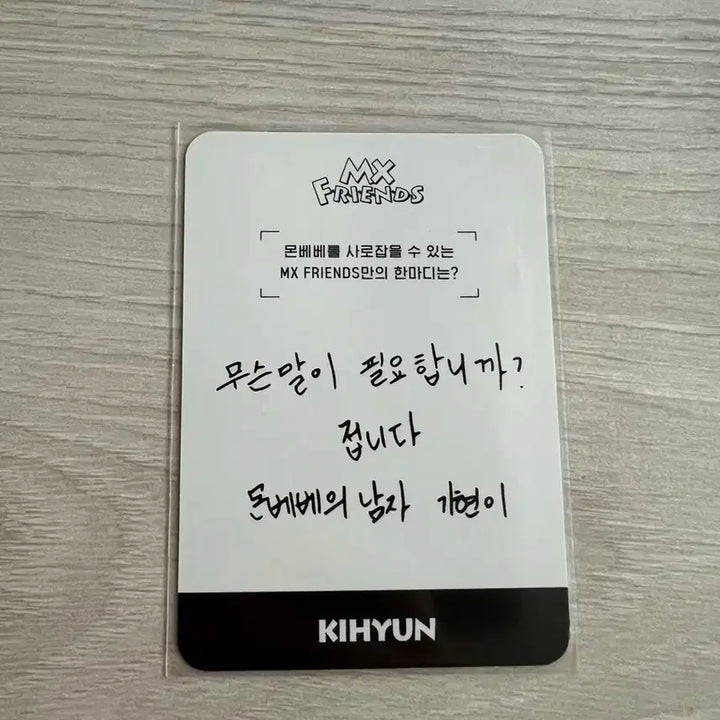 MX
FRIENDS
몬베베를 사로잡을 수 있는
MX FRIENDS만의 한마디는?
무슨말이 필요합니까?
접니다
몬베베의 남자 기현이
KIHYUN